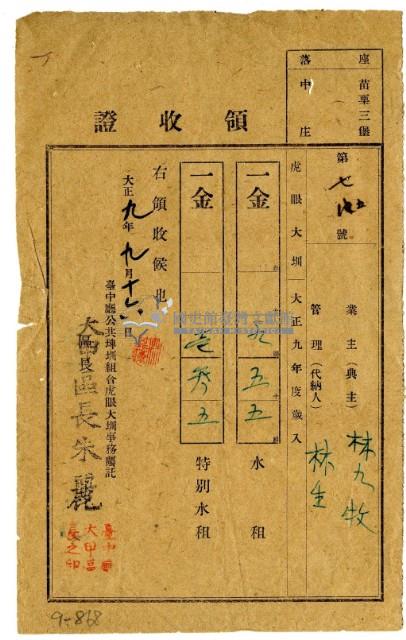 座落
苗栗三堡
中庄
領收證
第七 號
業主(典主) 林九牧
管理(代納人) 林生
虎眼大圳大正九年度歲入
一金 五 五 水租
一金 五 特別水租
右領收候也
大正九年九月十六
臺中廳公共埤圳組合虎眼大圳事務囑託
區長朱麗
臺中廳
大甲區
長之印
9-868
國史館臺灣文獻館